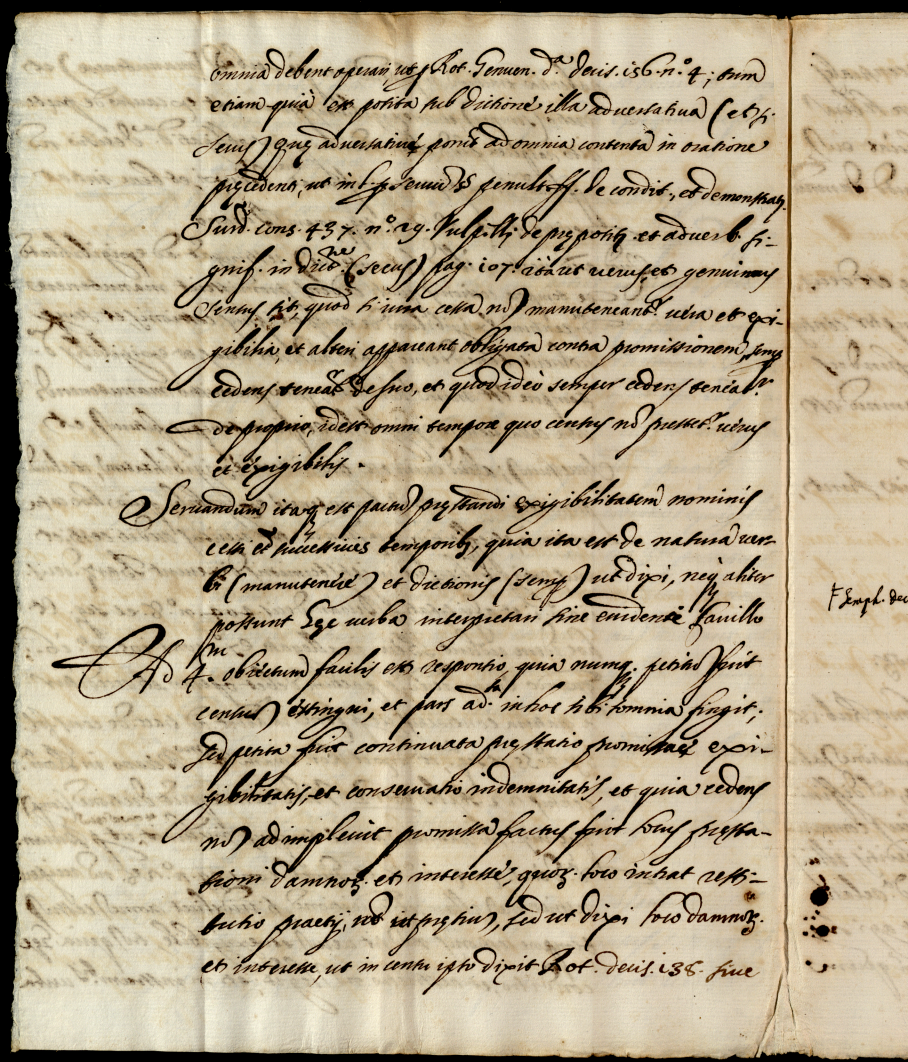 omnia debent operari, ut p Rot. Genuen. d.ᵃ decis. 156. n.º 4; tum
etiam quia est posita sub dictione illa adversativa (et si
secus) quę adversative ponit ad omnia contenta in oratione
pręcedenti, ut in l. servum § penult. ff. de condit., et demonstrat.
Surd. cons. 437. n.º 29. Vulpell. de pręposit. et adverb. si-
gnif. in dict.ne (secus) pag. 107. ita ut verus, et genuinus
sensus sit, quod si iura cessa nō manuteneant.r vera et exi-
gibilia, et alteri appareant obligata contra promissionem, semp
cedens teneat.r de suo, et quod ideo semper cedens teneat.r
de proprio, idest omni tempore quo census nō esset verus
et exigibilis.
Servandum itaq est pactū pręstandi exigibilitatem nominis
cessi et successivis temporib, quia ita est de natura ver-
bi (manutenere) et dictionis (semp) ut dixi, neq aliter
possunt hęc verba interpretari sine evidenti cavillo
Ad 4.m obiectum facilis est responsio, quia numq. petitū fuit
censū extingui, et pars ad.sa in hoc sibi omnia fingit;
sed petita fuit continuata pręstatio promissaę exi-
gibilitatis, et conservatio indemnitatis, et quia cedens
nō adimplevit promissa factus fuit locus pręsta-
tioni damnoꝝ. et interesse, quoꝝ. loco intrat resti-
tutio praetij, nō ut pretiū, sed ut dixi loco damnoꝝ.
et interesse, ut in censu ipso dixit Rot. decis. 138. sive